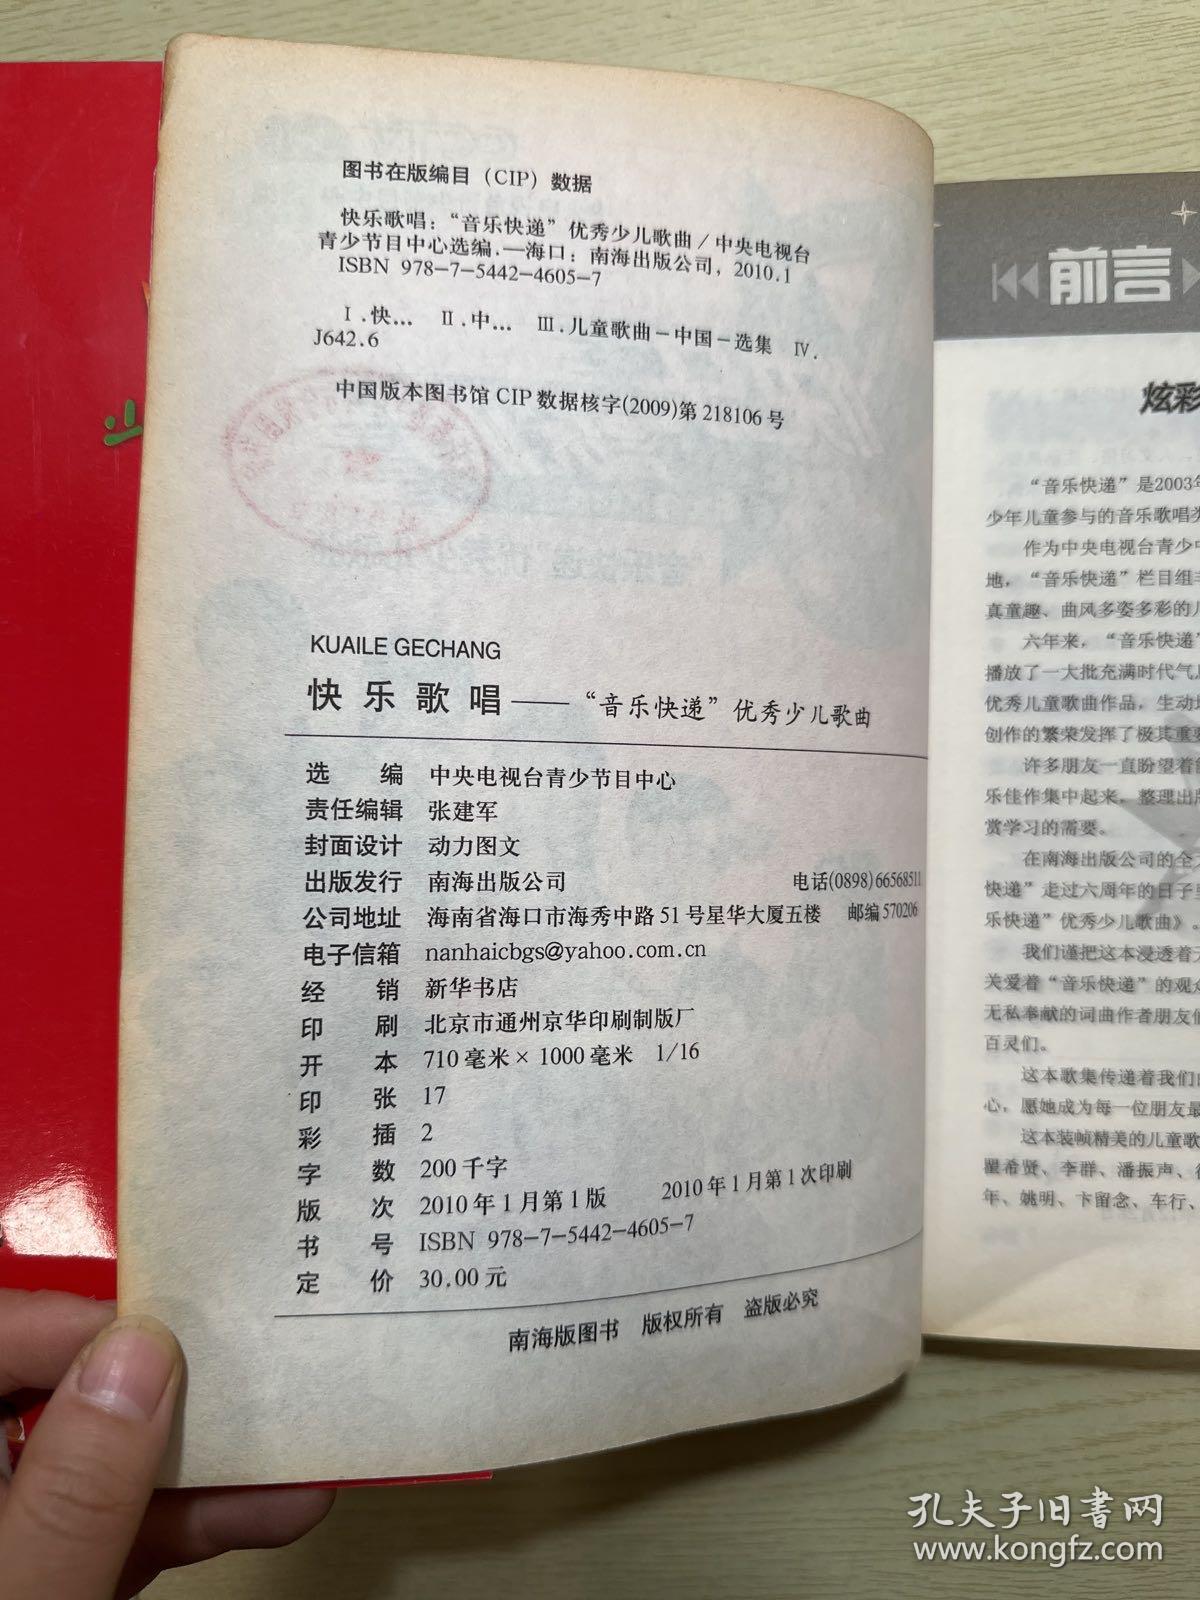 图书在版编目（CIP）数据
快乐歌唱：“音乐快递”优秀少儿歌曲／中央电视台
青少节目中心选编.—海口：南海出版公司，2010.1
ISBN 978-7-5442-4605-7
Ⅰ.快… Ⅱ.中… Ⅲ.儿童歌曲－中国－选集 Ⅳ.
J642.6
中国版本图书馆CIP数据核字(2009)第218106号
KUAILE GECHANG
快乐歌唱——“音乐快递”优秀少儿歌曲
选 编 中央电视台青少节目中心
责任编辑 张建军
封面设计 动力图文
出版发行 南海出版公司 电话(0898)66568511
公司地址 海南省海口市海秀中路51号星华大厦五楼 邮编570206
电子信箱 nanhaicbgs@yahoo.com.cn
经 销 新华书店
印 刷 北京市通州京华印刷制版厂
开 本 710毫米×1000毫米 1/16
印 张 17
彩 插 2
字 数 200千字
版 次 2010年1月第1版 2010年1月第1次印刷
书 号 ISBN 978-7-5442-4605-7
定 价 30.00元
南海版图书 版权所有 盗版必究
前言
炫彩
“音乐快递”是2003年
少年儿童参与的音乐歌唱类
作为中央电视台青少中
地，“音乐快递”栏目组丰
真童趣、曲风多姿多彩的儿
六年来，“音乐快递”
播放了一大批充满时代气息
优秀儿童歌曲作品，生动地
创作的繁荣发挥了极其重要
许多朋友一直盼望着能
乐佳作集中起来，整理出版
赏学习的需要。
在南海出版公司的全力
快递”走过六周年的日子里
乐快递”优秀少儿歌曲》。
我们谨把这本浸透着无
关爱着“音乐快递”的观众
无私奉献的词曲作者朋友们
百灵们。
这本歌集传递着我们的
心，愿她成为每一位朋友最
这本装帧精美的儿童歌
瞿希贤、李群、潘振声、徐
年、姚明、卞留念、车行、
孔夫子旧书网
www.kongfz.com